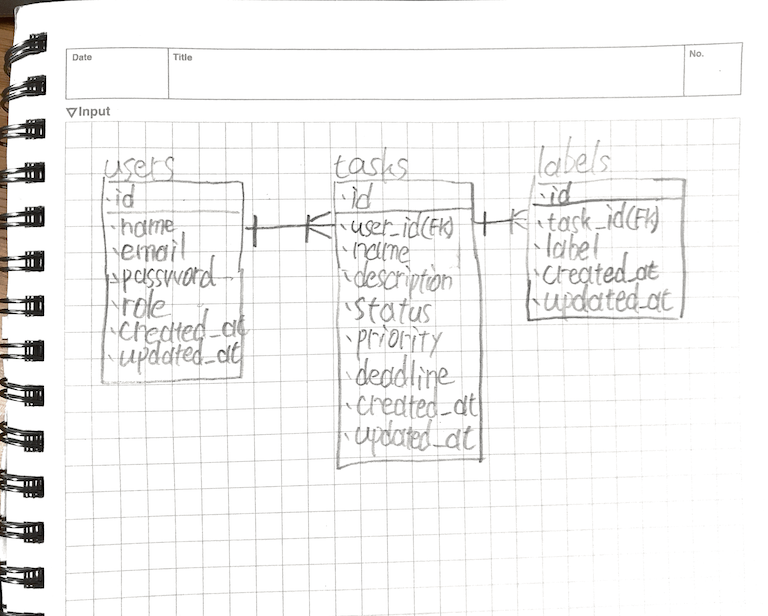 Date
Title
No.
▽Input
users
・id
・name
・email
・password
・role
・created_at
・updated_at
tasks
・id
・user_id(FK)
・name
・description
・status
・priority
・deadline
・created_at
・updated_at
labels
・id
・task_id(FK)
・label
・created_at
・updated_at